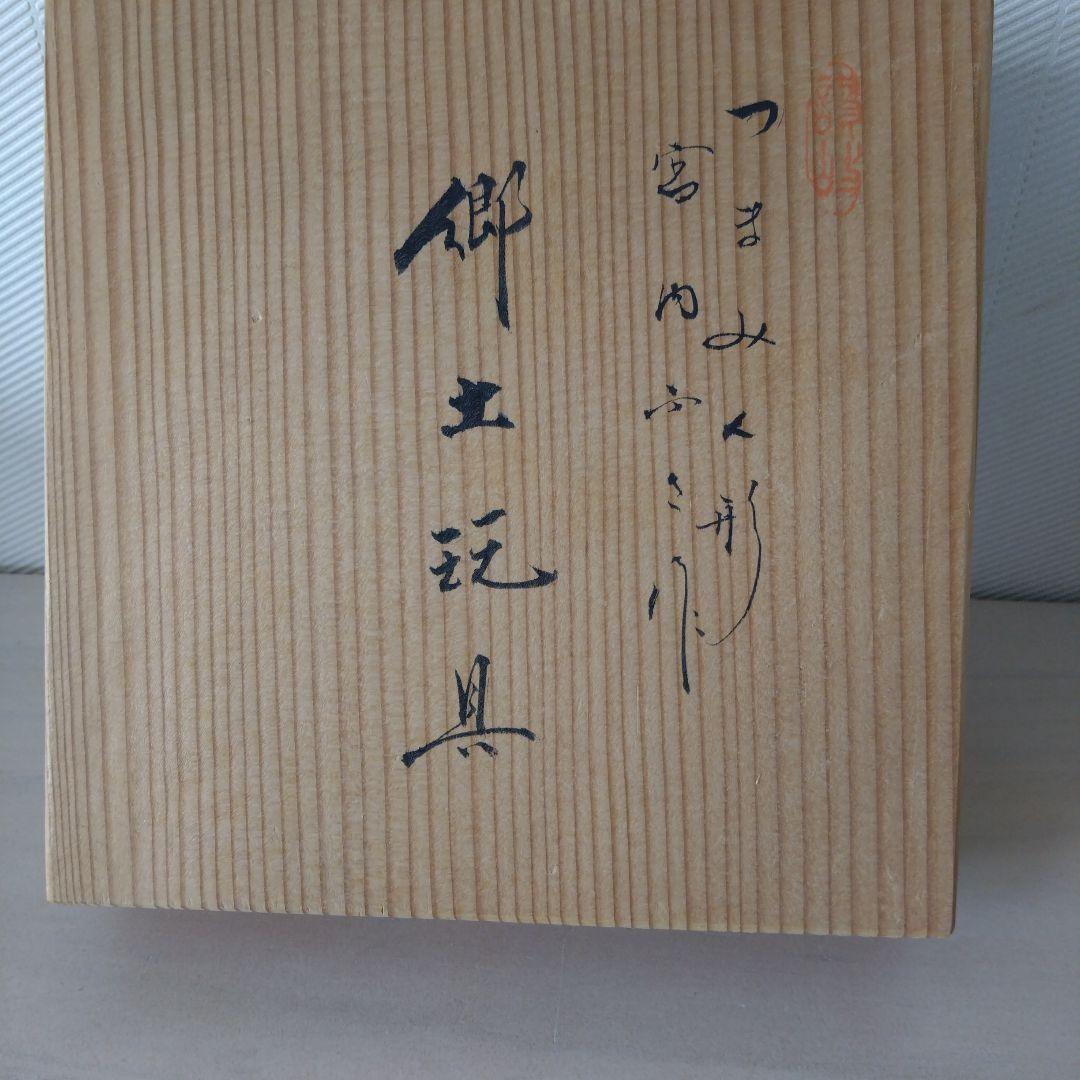 つまみ人形
宮内フサ作
郷土玩具